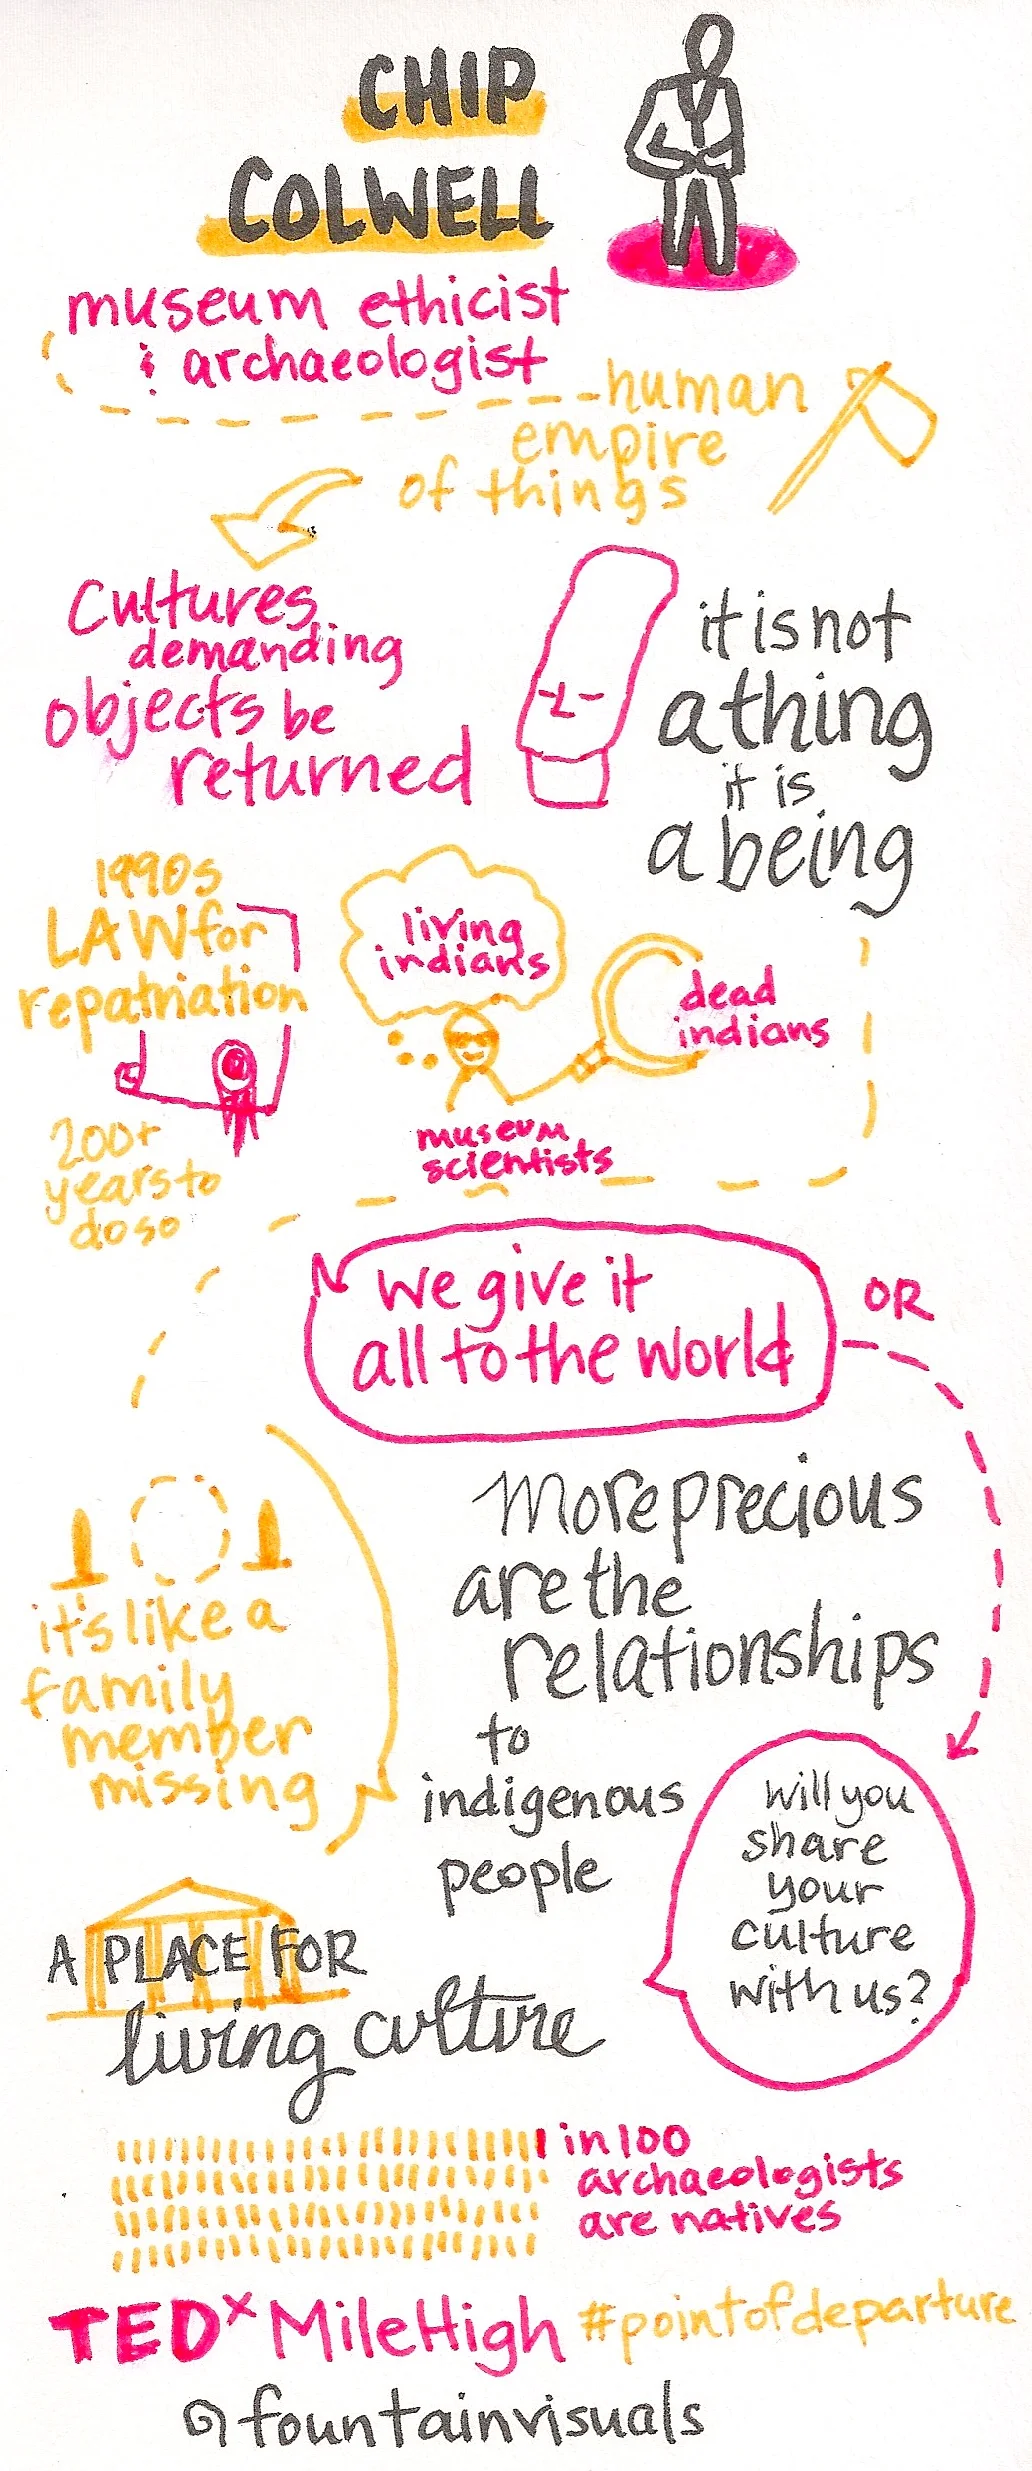 CHIP
COLWELL
museum ethicist
& archaeologist
human
empire
of things
Cultures
demanding
objects be
returned
it is not
a thing
it is
a being
1990s
LAW for
repatriation
200+
years to
do so
living
indians
dead
indians
museum
scientists
we give it
all to the world
OR
More precious
are the
relationships
to
indigenous
people
will you
share
your
culture
with us?
it's like a
family
member
missing
A PLACE FOR
living culture
1 in 100
archaeologists
are natives
TEDx MileHigh #pointofdeparture
@fountainvisuals